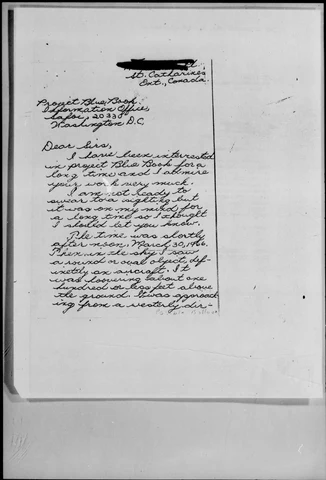 St. Catharines
Ont., Canada.
Project Blue Book
Information Office,
Safoi, 20330
Washington D.C
Dear Sirs,
I have been interested
in project Blue Book for a
long time and I admire
your work very much.
I am not ready to
swear to a sighting but
it was on my mind for
a long time so I thought
I should let you know.
The time was shortly
after noon, March 30, 1966.
Then in the sky I saw
a round or oval object, def-
inetly an aircraft. It
was hovering about one
hundred or less feet above
the ground. It was approach
ing from a westerly dir-